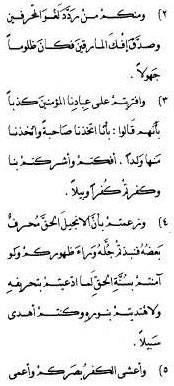 ٢) ومنكم من ردّد لغو المحرفين
وصدّق إفك المارقين فكان ظلوما
جهولاً .
٣) وافتريتم على عبادنا المؤمنين كذباً
بأنهم قالوا : بأنا اتخذنا صاحبة واتخذنا
منها ولداً . أفكتم وأشركتم بنا
وكفرتم كفراً وبيلاً .
٤) وزعمتم بأن الإنجيل الحق محرف
بعضه فنبذتم جلّه وراء ظهوركم ولو
آمنتم بسنّة الحق لما ادّعيتم بتحريفه
ولاهتديتم بنوره وكنتم أهدى
سبيلاً .
٥) وأعشى الكفر بصركم وأعمى